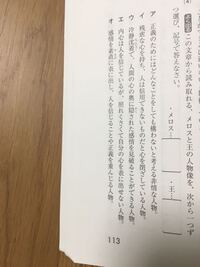 この文章から読み取れる、メロスと王の人物像を、次から一つず
つ選び、記号で答えなさい。
・メロス
・王
ア 正義のためにはどんなことをしても構わないと考える非情な人物。
イ 残忍な心を持ち、人は信用できないものだと心を閉ざしている人物。
ウ 冷静沈着で、人間の心の奥に隠された感情を見破ることができる人物。
エ 内心は人を信じているが、照れくさくて自分の心を表に出せない人物。
オ 感情を素直に表に出し、人を信じることや正義を重んじる人物。
113